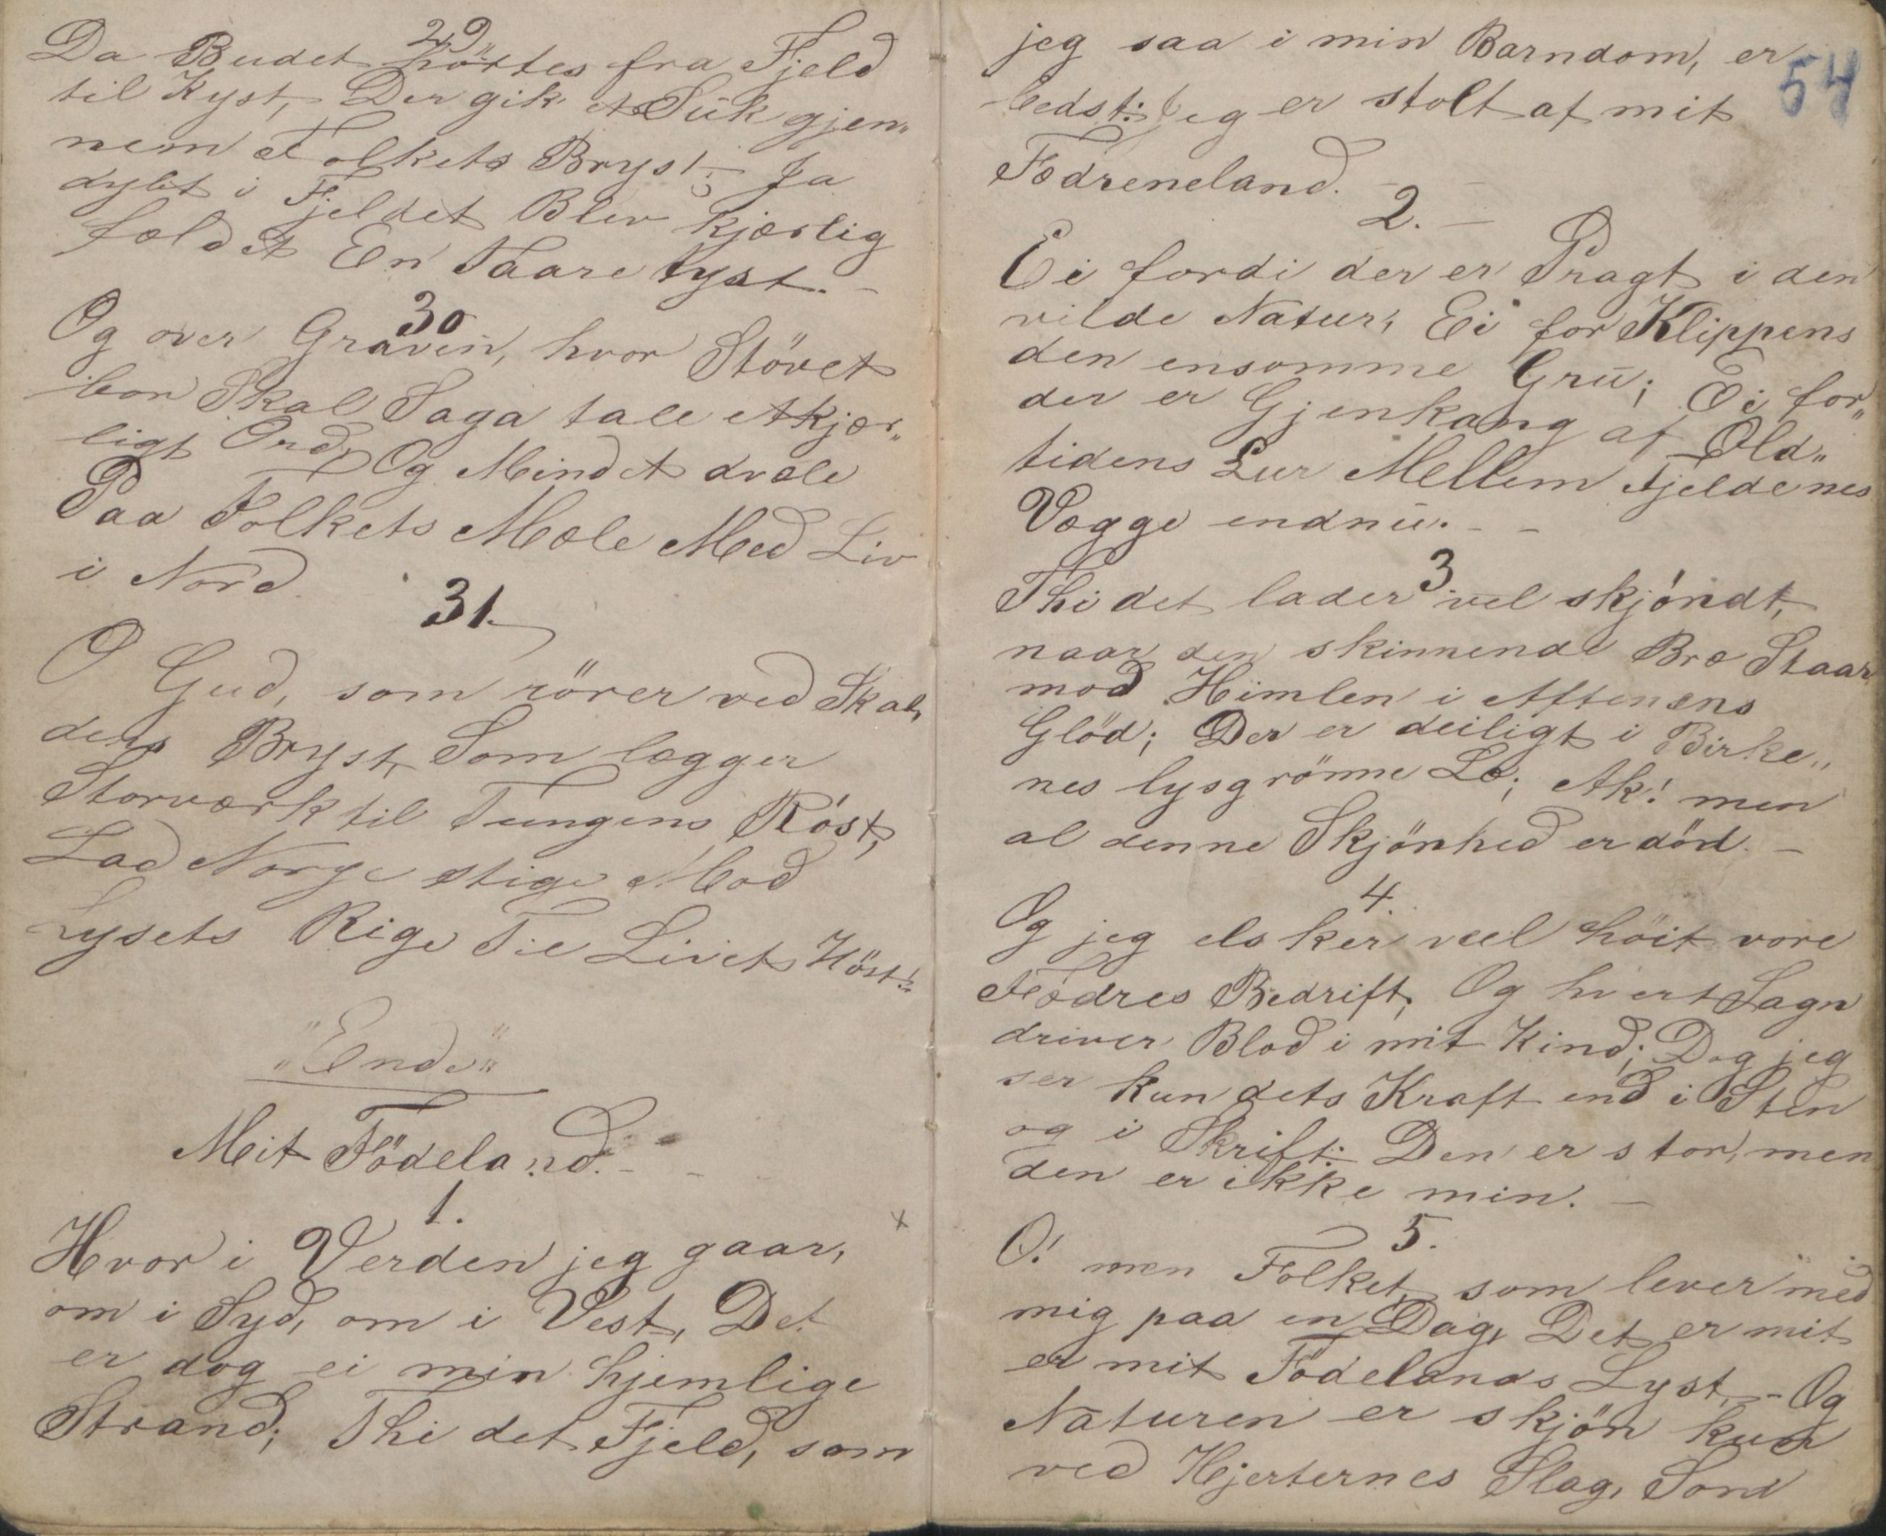 29
Da Budet hörtes fra Fjeld
til Kyst, Der gik et Suk gjen„
nem Folkets Bryst; Ja
dybt i Fjeldet Blev kjærlig
fældet En Taare tyst. –
30
Og over Graven, hvor Stövet
bor Skal Saga tale et kjær„
ligt Ord, Og Mindet dvæle
Paa Folkets Mæle Med Liv
i Nord.
31.
O Gud, som rörer ved Skal„
dens Bryst, Som lægger
Storværk til Tungens Röst,
Lad Norge stige Mod
Lysets Rige Til Livets Höst!
„Ende“
Mit Födeland. –
1.
Hvor i Verden jeg gaar,
om i Syd, om i Vest, Det
er dog ei min hjemlige
Strand; Thi det Fjeld, som
54
jeg saa i min Barndom, er
bedst: Jeg er stolt af mit
Fædreneland. –
2. –
Ei fordi der er Pragt i den
vilde Natur, Ei for Klippens
den ensomme Gru; Ei for„
der er Gjenkang af Old„
tidens Lur Mellem Fjeldenes
Vægge endnu. – –
3
Thi det lader vel skjöndt,
naar den skinnende Bræ Staar
mod Himlen i Aftenens
Glöd; Der er deiligt i Birke„
nes lysgrönne Læ; Ak! men
al denne Skjönhed er död. –
4.
Og jeg elsker vel höit vore
Fædres Bedrift, Og hvert Sagn
driver Blod i mit Kind; Dog jeg
ser kun dets Kraft end i Sten
og i Skrift: Den er stor, men
den er ikke min. –
5.
O! men Folket, som lever med
mig paa en Dag, Det er mit
er mit Födelands Lyst, – Og
Naturen er skjön kun
ved Hjerternes Slag, Som